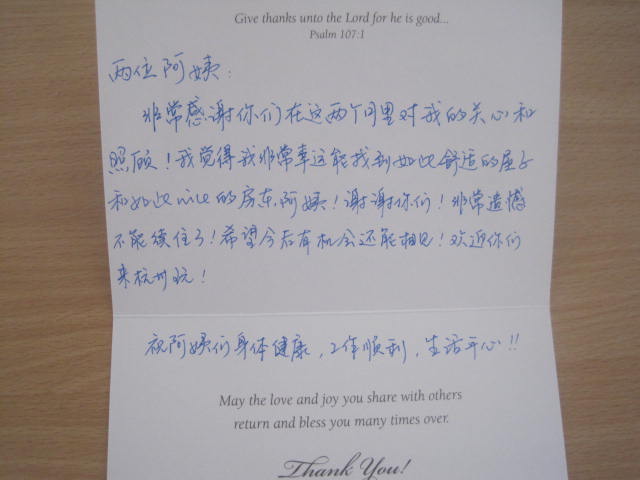 Give thanks unto the Lord for he is good...
Psalm 107:1
两位阿姨：
非常感谢你们在这两个月里对我的关心和
照顾！我觉得我非常幸运能找到如此舒适的屋子
和如此nice的房东阿姨！谢谢你们！非常遗憾
不能续住了！希望今后有机会还能相见！欢迎你们
来杭州玩！
祝阿姨们身体健康，工作顺利，生活开心!!
May the love and joy you share with others
return and bless you many times over.
Thank You!